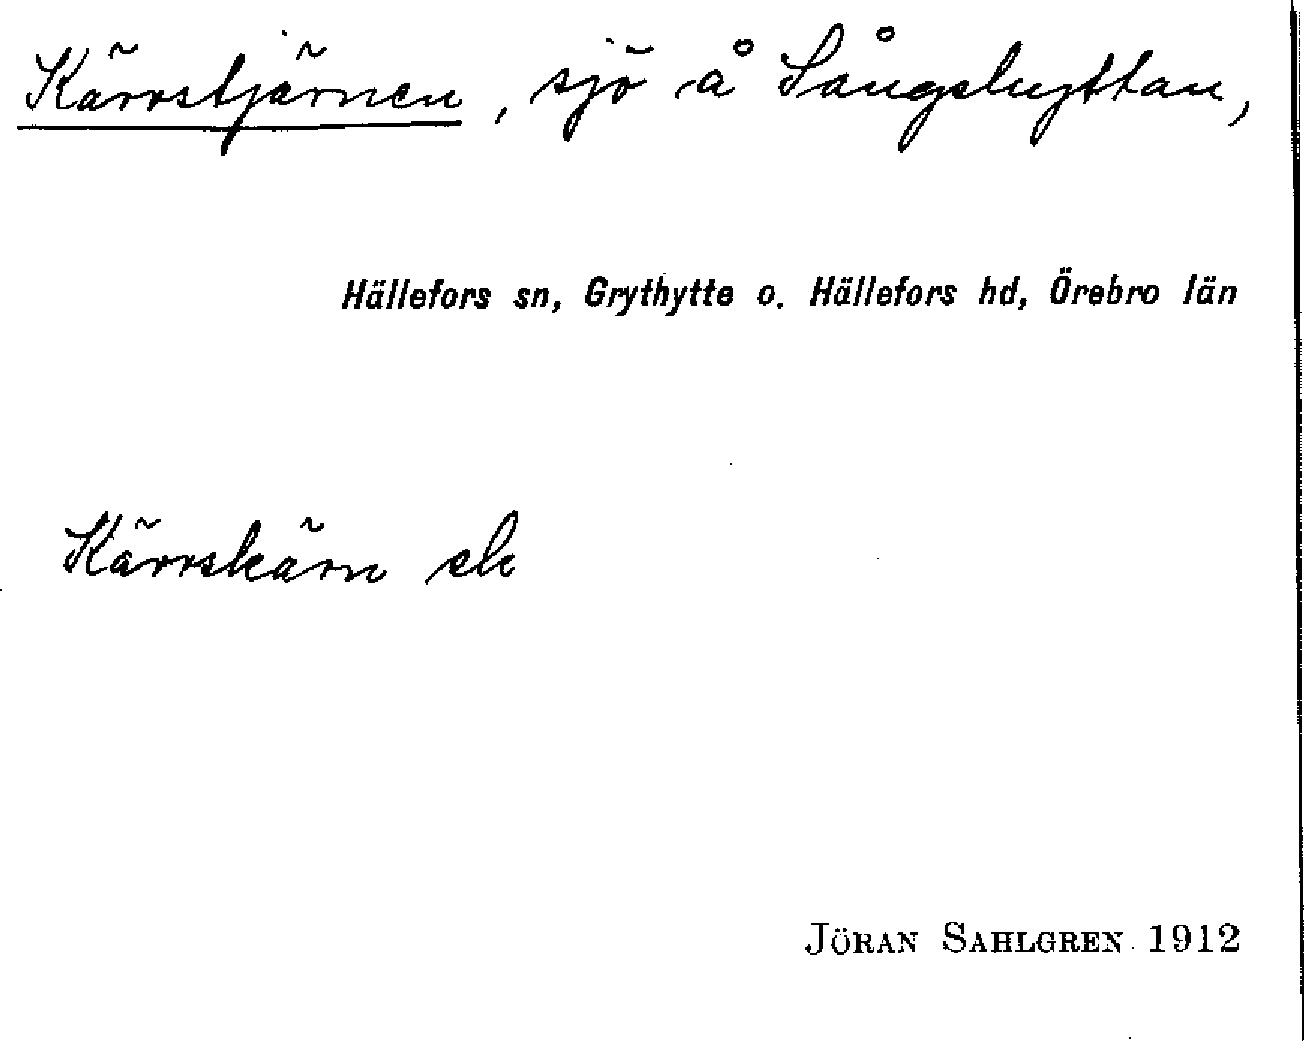 Kärrstjärnen, sjö å Sångshyttan,
Hällefors sn, Grythytte o. Hällefors hd, Örebro län
Kärrskärn ek
JÖRAN SAHLGREN 1912